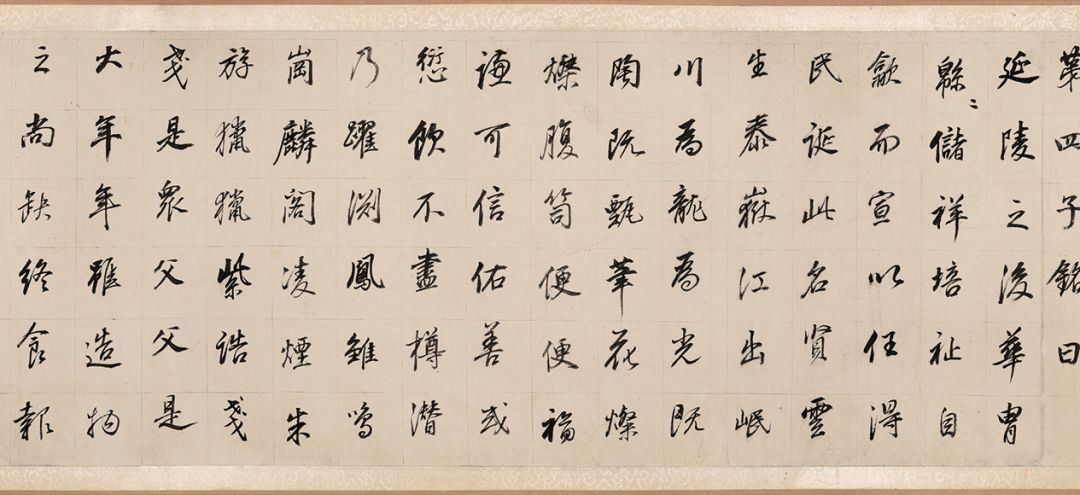 四子銘曰
延陵之後華冑
緜〻儲祥培祉自
歙而宣以任得
民誕此名賢雲
生泰嶽江出岷
川為龍為光既
陶既甄華花燦
爍腹笥便便福
謙可信佑善或
愆飲不盡樽潛
乃躍淵鳳雛鳴
崗麟閣凌煙朱
斿獵獵紫誥戔
戔是眾父父是
大年年雖造物
之尚缺終食報